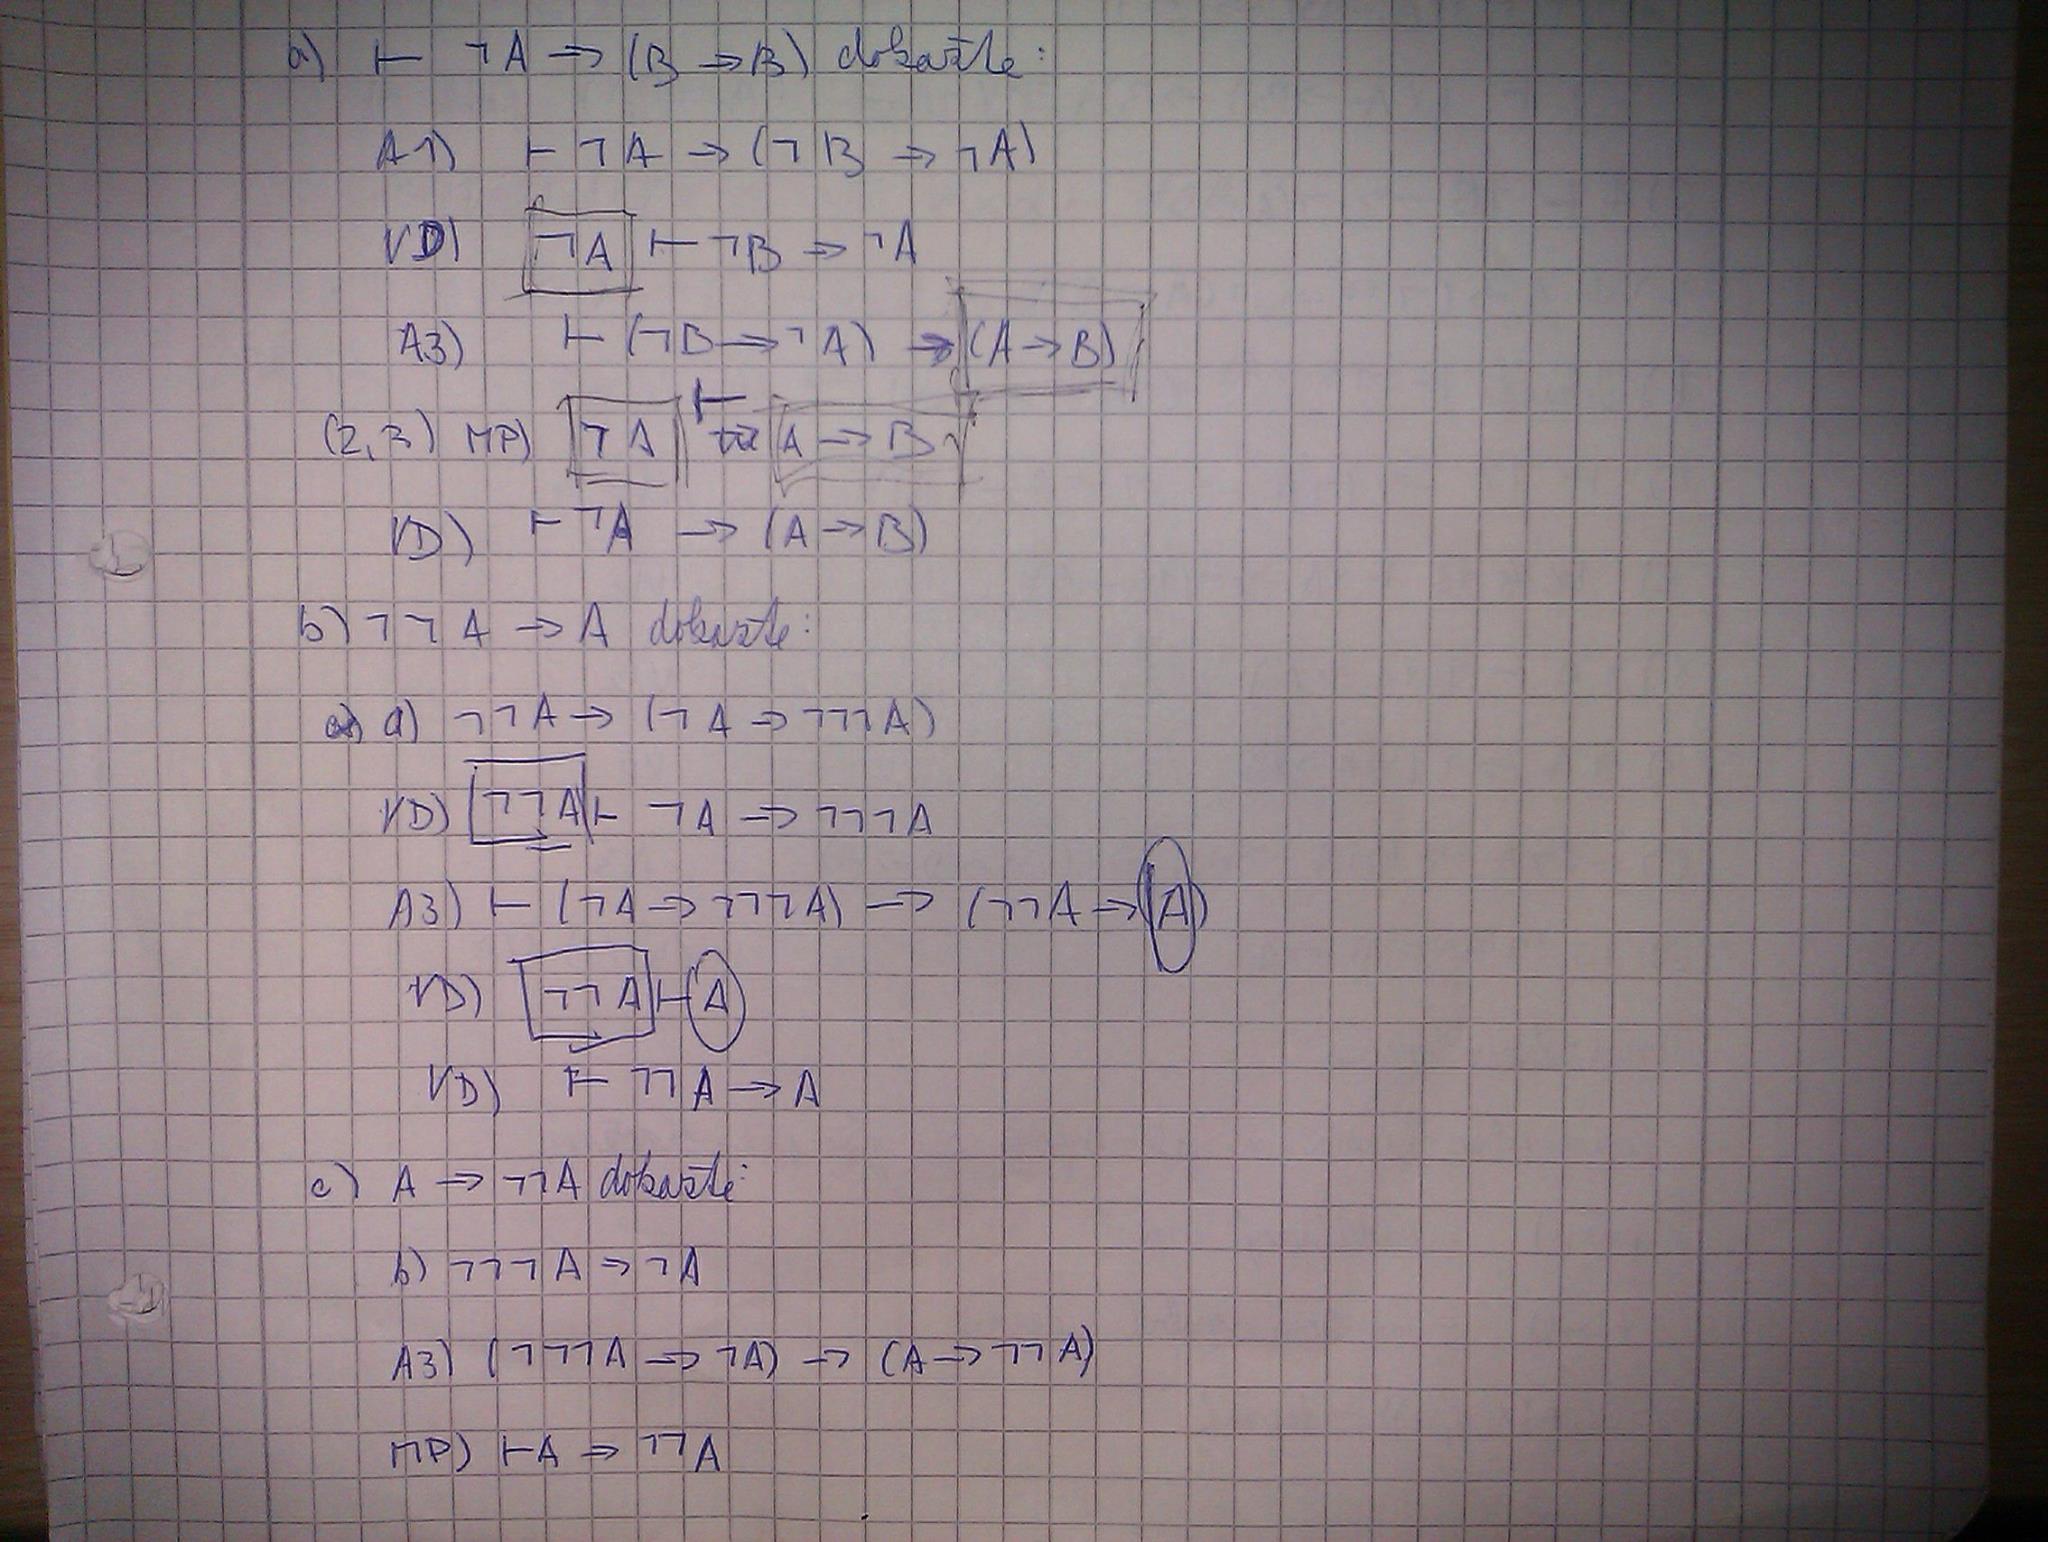 a) ⊢ ¬A → (B → B) dokažte:
A1) ⊢ ¬A → (¬B → ¬A)
VD) ¬A ⊢ ¬B → ¬A
A3) ⊢ (¬B → ¬A) → (A → B)
(2,3) MP) ¬A ⊢ A → B
VD) ⊢ ¬A → (A → B)
b) ¬¬A → A dokažte:
a) ¬¬A → (¬A → ¬¬¬A)
VD) ¬¬A ⊢ ¬A → ¬¬¬A
A3) ⊢ (¬A → ¬¬¬A) → (¬¬A → A)
VD) ¬¬A ⊢ A
VD) ⊢ ¬¬A → A
c) A → ¬¬A dokažte:
b) ¬¬¬A → ¬A
A3) (¬¬¬A → ¬A) → (A → ¬¬A)
MP) ⊢ A → ¬¬A